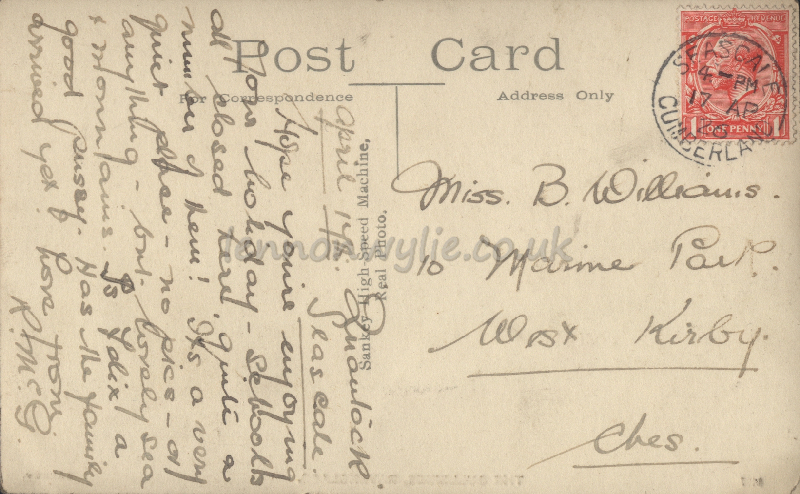 Post Card
For Correspondence
Address Only
POSTAGE REVENUE
1 ONE PENNY 1
SEASCALE
4 - PM
17 AP
CUMBERLAND
Miss. B. Williams.
10 Marine Park.
West Kirby.
Ches.
Sankey High-Speed Machine,
Real Photo.
lennonwylie.co.uk
April 17th.
Seascale.
Hope you're enjoying
your holiday - schools
all closed here. Quite a
number of them! It's a very
quiet place - no pics - or
anything - but lovely sea
& mountains. Is a
good Pussy. Has the family
arrived yet? Love from
R. McG.